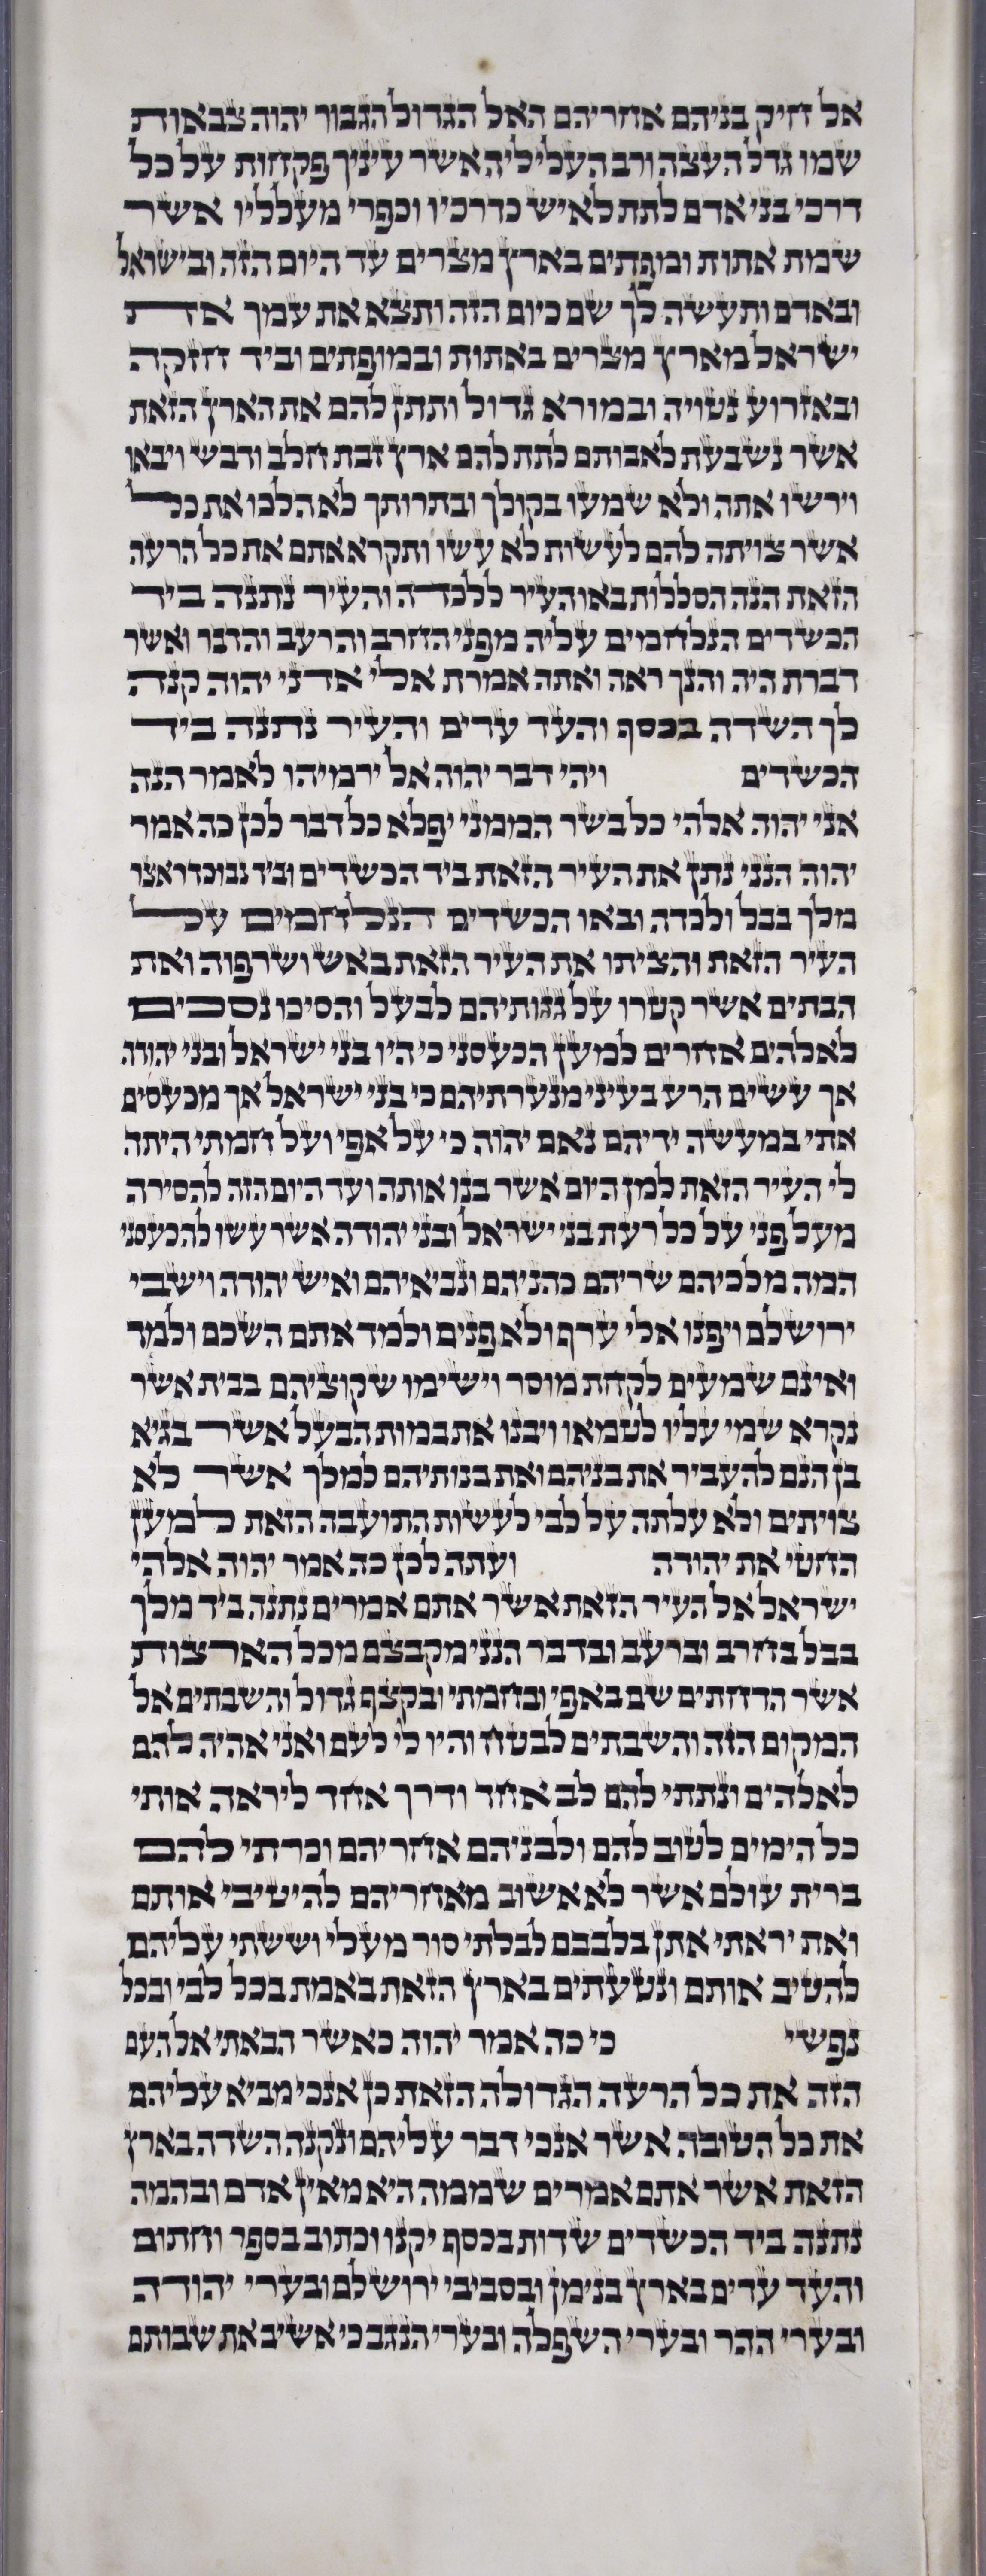 אל חיק בניהם אחריהם האל הגדול הגבור יהוה צבאות
שמו גדל העצה ורב העליליה אשר עיניך פקחות על כל
דרכי בני אדם לתת לאיש כדרכיו וכפרי מעלליו אשר
שמת אתות ומפתים בארץ מצרים עד היום הזה ובישראל
ובאדם ותעשה לך שם כיום הזה ותצא את עמך את
ישראל מארץ מצרים באתות ובמופתים וביד חזקה
ובאזרוע נטויה ובמורא גדול ותתן להם את הארץ הזאת
אשר נשבעת לאבותם לתת להם ארץ זבת חלב ודבש ויבאו
וירשו אתה ולא שמעו בקולך ובתרותך לא הלכו את כל
אשר צויתה להם לעשות לא עשו ותקרא אתם את כל הרעה
הזאת הנה הסללות באו העיר ללכדה והעיר נתנה ביד
הכשדים הנלחמים עליה מפני החרב והרעב והדבר ואשר
דברת היה והנך ראה ואתה אמרת אלי אדני יהוה קנה
לך השדה בכסף והעד עדים והעיר נתנה ביד
הכשדים ויהי דבר יהוה אל ירמיהו לאמר הנה
אני יהוה אלהי כל בשר הממני יפלא כל דבר לכן כה אמר
יהוה הנני נתן את העיר הזאת ביד הכשדים וביד נבוכדראצר
מלך בבל ולכדה ובאו הכשדים הנלחמים על
העיר הזאת והציתו את העיר הזאת באש ושרפוה ואת
הבתים אשר קטרו על גגותיהם לבעל והסיכו נסכים
לאלהים אחרים למען הכעסני כי היו בני ישראל ובני יהודה
אך עשים הרע בעיני מנערתיהם כי בני ישראל אך מכעסים
אתי במעשה ידיהם נאם יהוה כי על אפי ועל חמתי היתה
לי העיר הזאת למן היום אשר בנו אותה ועד היום הזה להסירה
מעל פני על כל רעת בני ישראל ובני יהודה אשר עשו להכעסני
המה מלכיהם שריהם כהניהם ונביאיהם ואיש יהודה וישבי
ירושלם ויפנו אלי ערף ולא פנים ולמד אתם השכם ולמד
ואינם שמעים לקחת מוסר וישימו שקוציהם בבית אשר
נקרא שמי עליו לטמאו ויבנו את במות הבעל אשר בגיא
בן הנם להעביר את בניהם ואת בנותיהם למלך אשר לא
צויתים ולא עלתה על לבי לעשות התועבה הזאת למען
החטי את יהודה ועתה לכן כה אמר יהוה אלהי
ישראל אל העיר הזאת אשר אתם אמרים נתנה ביד מלך
בבל בחרב וברעב ובדבר הנני מקבצם מכל הארצות
אשר הדחתים שם באפי ובחמתי ובקצף גדול והשבתים אל
המקום הזה והשבתים לבטח והיו לי לעם ואני אהיה להם
לאלהים ונתתי להם לב אחד ודרך אחד ליראה אותי
כל הימים לטוב להם ולבניהם אחריהם וכרתי להם
ברית עולם אשר לא אשוב מאחריהם להיטיבי אותם
ואת יראתי אתן בלבבם לבלתי סור מעלי וששתי עליהם
להטיב אותם ונטעתים בארץ הזאת באמת בכל לבי ובכל
נפשי כי כה אמר יהוה כאשר הבאתי אל העם
הזה את כל הרעה הגדולה הזאת כן אנכי מביא עליהם
את כל הטובה אשר אנכי דבר עליהם ונקנה השדה בארץ
הזאת אשר אתם אמרים שממה היא מאין אדם ובהמה
נתנה ביד הכשדים שדות בכסף יקנו וכתוב בספר וחתום
והעד עדים בארץ בנימן ובסביבי ירושלם ובערי יהודה
ובערי ההר ובערי השפלה ובערי הנגב כי אשיב את שבותם